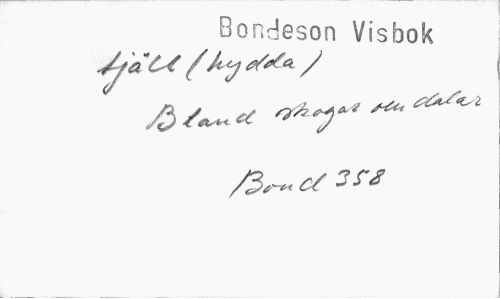 Bondeson Visbok
tjäll (hydda)
Bland skogar och dalar
Bond 358